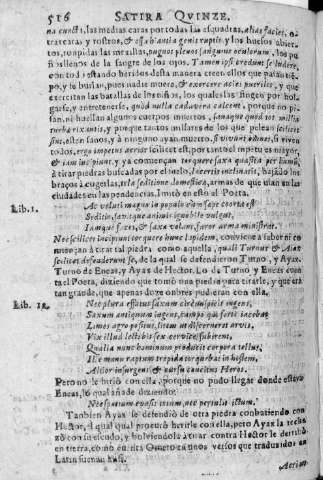 516 SATIRA QVINZE.
na cuncti, las medias caras por todas las esquadras, alias facies, o
tras caras y rostros, & ossa hiantia genis ruptis, y los huesos abier-
tos, rompidas las mexillas, pugnos plenos sanguine oculorum, los pu
ños llenos de la sangre de los ojos. Tamen ipsi credunt se ludere,
con todo estando heridos desta manera creen ellos que passan tie-
po, y se burlan, pues nadie muera, & exercere acies pueriles, y que
exercitan las batallas de los niños, los quales las fingen por hol-
garse, y entretenerse, quòd nulla cadavera calcent, porque no pi-
san, ni huellan algunos cuerpos muertos, sanaque quòd tot millia
turba rixantis, y porque tantos millares de los que pelean scilicet
sint, estén sanos, y à ninguno ayan muerto, si vivunt omnes, si viven
todos, ergo impetus acrior scilicet est, por tanto el impetu es mayor,
& iam incipiunt, y ya comiençan torquere saxa quæsita per humũ,
à tirar piedras buscadas por el suelo, lacertis inclinatis, baxado los
braços à cogerlas, tela seditione domestica, armas de que usan en las
ciudades en las pendencias. Imitò en esto al Poeta.
Lib.1. Ac veluti magno in populo cùm sæpe coorta est
Seditio, sævitque animis ignobile vulgus,
Iamque faces, & saxa volant, furor arma ministrat.
Nec scilicet incipiunt torquere hunc lapidem, conviene à saber ni co
miençan à tirar tal piedra como aquella, quali Turnus & Aiax
scilicet defenderunt se, de la qual se defendieron Turno, y Ayax.
Turno de Eneas, y Ayas de Hector. Lo de Turno, y Eneas cuen-
ta el Poeta, diziendo que tomò una piedra para tirarle, y que era
tan grande, que apenas doze onbres pudieran con ella.
Lib. 12. Nec plura effatus saxum circumspicit ingens,
Saxum antiquum ingens, campo qui fortè iacebat
Limes agro positus, litem ut discerneret arvis,
Vix illud lecti bis sex cervice subirent,
Qualia nunc hominum producit corpora tellus,
Ille manu raptum trepida torquebat in hostem,
Altior insurgens, & cursu concitus Heros.
Pero no le hiriò con ella, porque no pudo llegar donde estava
Eneas, lo qual añade diziendo:
Nec spatium evasit totum, nec pertulit ictum.
Tanbien Ayax se defendiò de otra piedra conbatiendo con
Hector, el qual qual procurò herirle con ella, pero Ayax la rechа
zò con su escudo, y bolviendola à tirar contra Hector le derribò
en tierra, como escrive Omero en unos versos que traduzidos en
Latin suenan assi.